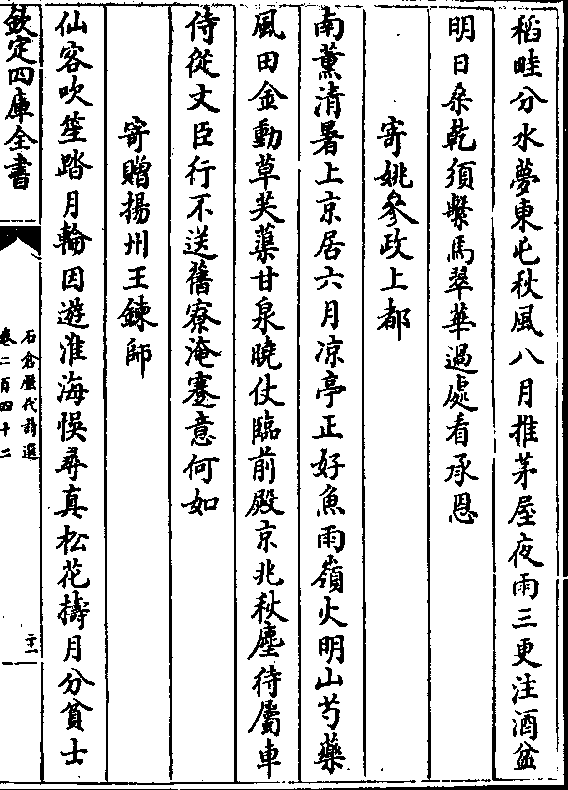 稻畦分水夢東屯秋風八月推茅屋夜雨三更注酒盆
明日桑乾須繫馬翠華過處看承恩
寄姚參政上都
南薰清暑上京居六月凉亭正好魚雨嶺火明山芍藥
風田金動草芙蕖甘泉曉仗臨前殿京兆秋塵待屬車
侍從丈臣行不送舊寮淹蹇意何如
寄贈揚州王鍊師
仙客吹笙踏月輪因遊淮海悞尋真松花擣月分貧士
欽定四庫全書
石倉歷代詩選
卷二百四十二
二十一